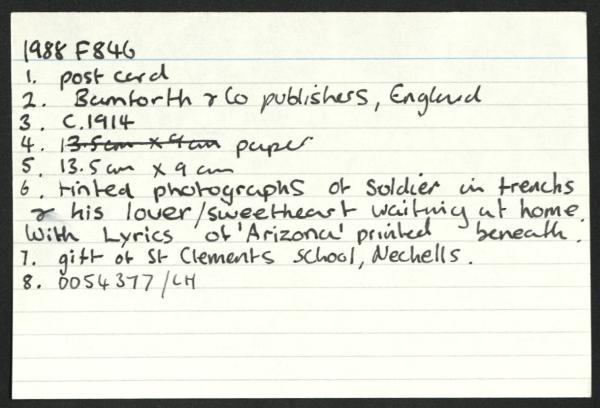 1988 F846
1. post card
2. Bamforth & Co publishers, England
3. C.1914
4. 13.5cm x 9cm paper
5. 13.5cm x 9cm
6. tinted photographs of soldier in trenchs
& his lover/sweetheart waiting at home.
With Lyrics of 'Arizona' printed beneath.
7. gift of St Clements School, Nechells.
8. 0054377/LH